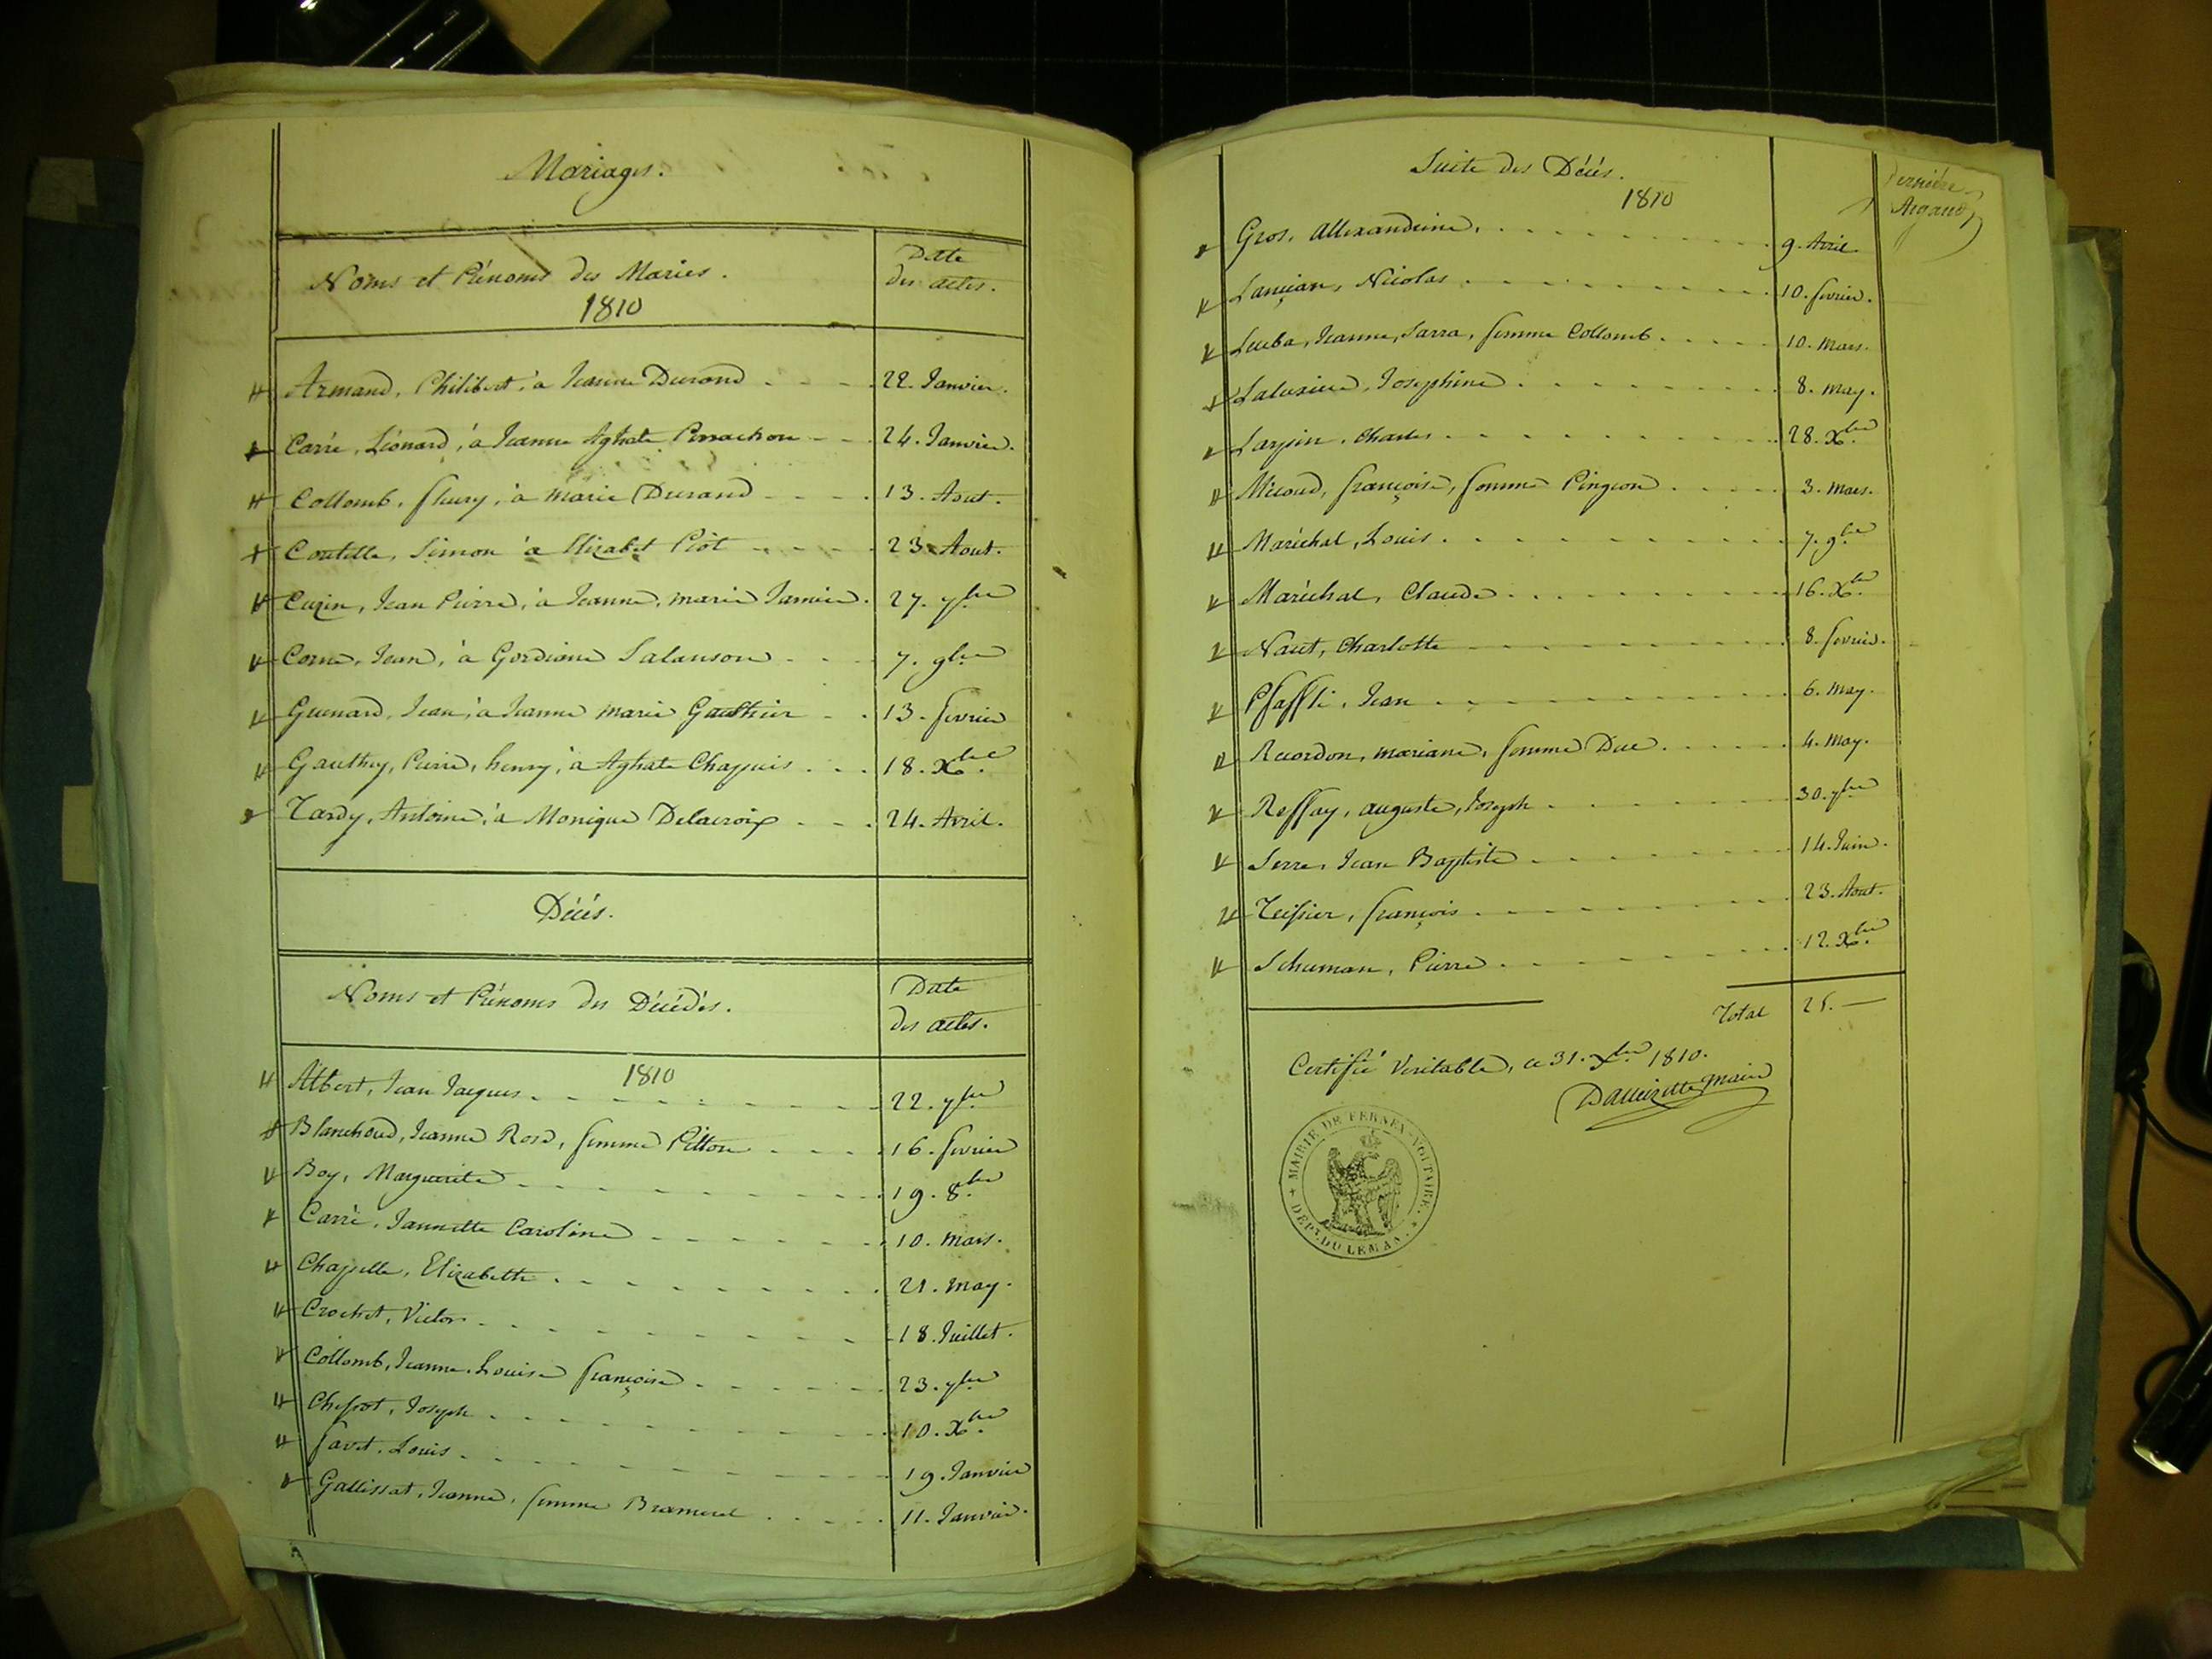 Mariages.
Noms et Prénoms des Mariés.
1810
Date
des actes.
Armand, Philibert, à Jeanne Durand 22. Janvier.
Carré, Léonard, à Jeanne Aghate Perrachon 24. Janvier.
Collomb, fleury, à marie Durand 13. Aout.
Coutelle, Simon à Elizabet Piot 23. Aout.
Cuzin, Jean Pierre, à Jeanne, marie Janier. 27. 7bre
Corne, Jean, à Gordiane Salanson 7. 9bre
Guenard, Jean, à Jeanne marie Gauthier 13. fevrier
Gauthey, Pierre, henry, à Aghate Chapuis 18. Xbre.
Tardy, Antoine, à Monique Delacroix 24. Avril.
Décés.
Noms et Prénoms des Décédés.
Date
des actes.
1810
Albert, Jean Jacques 22. 7bre
Blanchoud, Jeanne Rose, femme Pitton 16. fevrier
Boy, Marguerite 19. 8bre
Carré, Jannette Caroline 10. mars.
Chapelle, Elizabette 21. may.
Crochet, Victor 18. Juillet.
Collomb, Jeanne. Louise françoise 23. 7bre
Joseph 10. Xbre.
favet. Louis 19. Janvier
Gallissat, Jeanne, femme Bramerel 11. Janvier.
Suite des Décés.
1810
Derniére
Argand
Gros, Allexandrine. 9. Avril.
Lançian, Nicolas 10. fevrier.
Leuba, Jeanne, Sarra, femme Collomb 10. mars.
Josephine 8. may.
Larpin, Charles 28. Xbre.
Micoud, françoise, femme Pingeon 3. mars.
Maréchal, Louis 7. 9bre
Maréchal, Claude 16. Xbre.
Naut, Charlotte 8. fevrier.
Pfaffli, Jean 6. may.
Recordon, mariane, femme Duc 4. may.
Reffay, auguste, Joseph 30. 7bre
Serre, Jean Baptiste 14. Juin.
Teissier, françois 23. Aout.
Schuman, Pierre 12. Xbre.
Total 25.
Certifié Veritable, ce 31. Xbre 1810.
maire
MAIRIE DE FERNEY-VOLTAIRE.
DEPT. DU LEMAN.